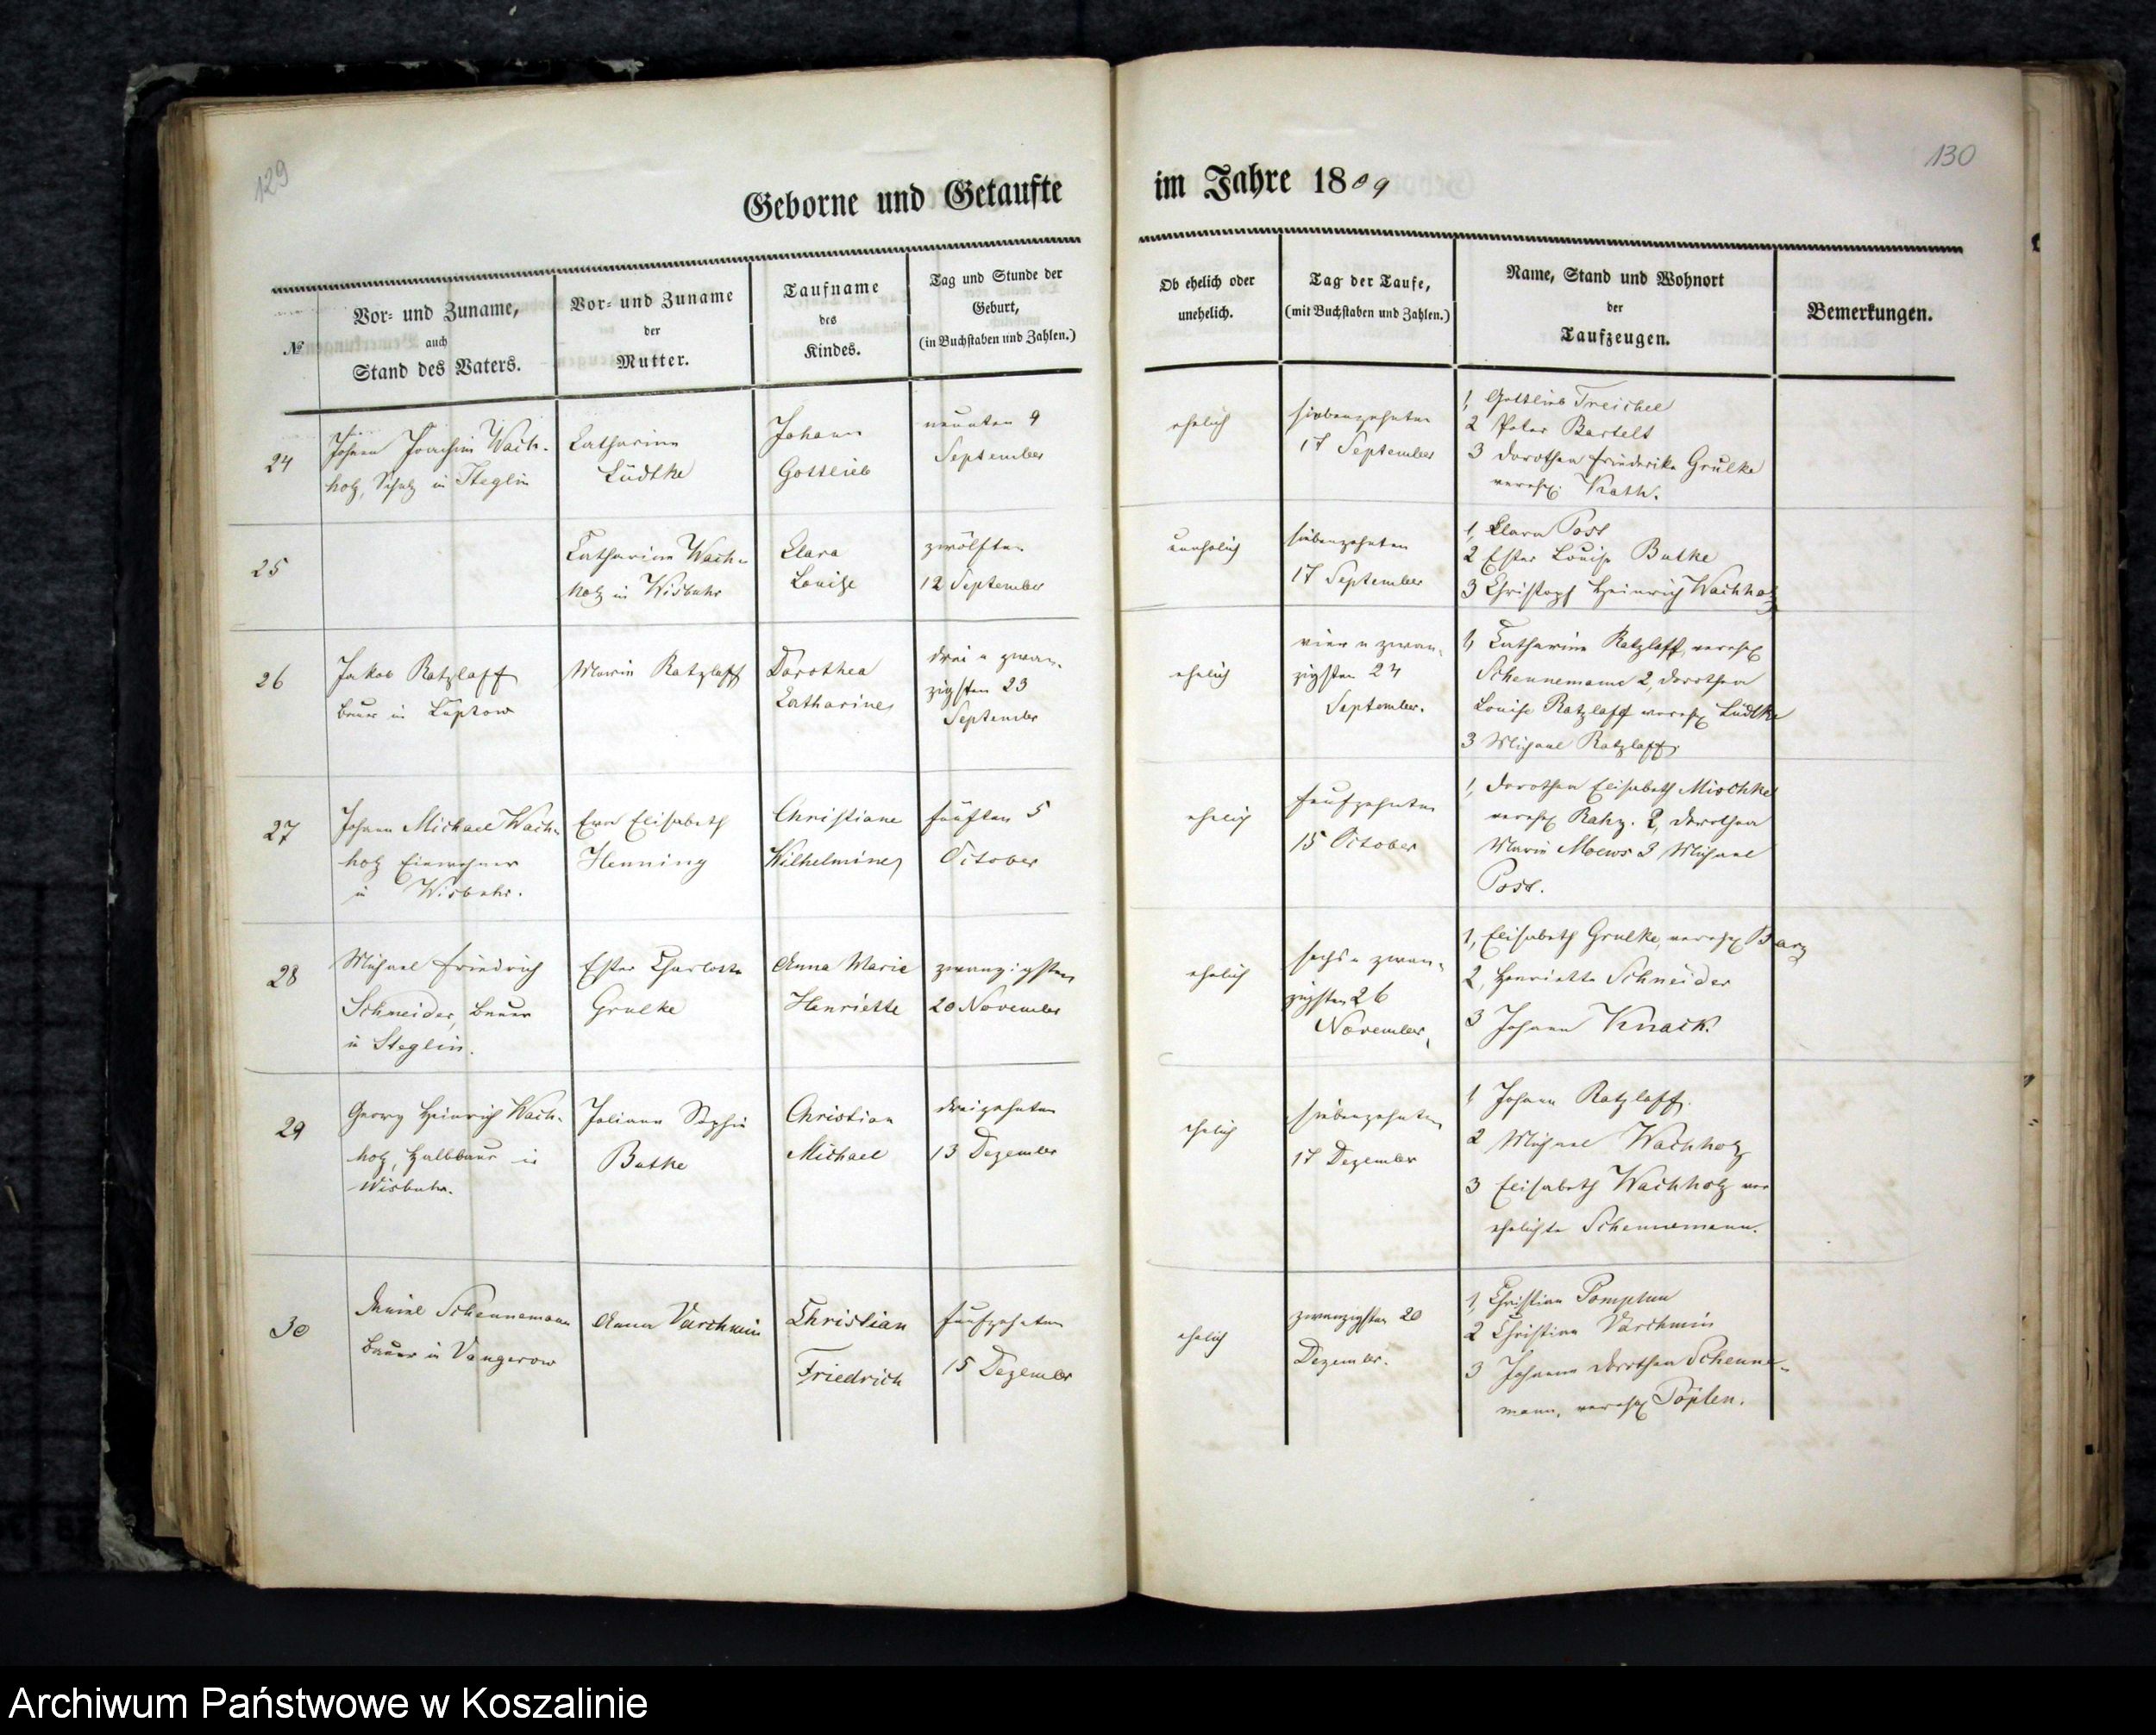 129
130
Geborne und Getaufte im Jahre 1809
№
Vor- und Zuname,
auch
Stand des Vaters.
Vor- und Zuname
der
Mutter.
Taufname
des
Kindes.
Tag und Stunde der
Geburt,
(in Buchstaben und Zahlen.)
Ob ehelich oder
unehelich.
Tag der Taufe,
(mit Buchstaben und Zahlen.)
Name, Stand und Wohnort
der
Taufzeugen.
Bemerkungen.
24
Johann Joachim Wach-
holz, Schulz in Steglin
Catharina
Lüdtke
Johann
Gottlieb
neunten 9
September
ehelich
siebenzehnten
17 September
1, Gottlieb Treichel
2 Peter Bartelt
3 Dorothea Friederike Grulke
verehl. Kath.
25
Catharina Wach-
holz in Wisbuhr
Clara
Louise
zwölften
12 September
unehelich
siebenzehnten
17 September
1, Clara Post
2 Ester Louise Butke
3 Christoph Heinrich Wachholz
26
Jakob Ratzlaff
Bauer in Lüptow
Maria Ratzlaff
Dorothea
Catharine
drei u zwan-
zigsten 23
September
ehelich
vier u zwan-
zigsten 24
September.
1, Catharina Ratzlaff, verehl
Schennemann 2, Dorothea
Louise Ratzlaff verehl Lüdtke
3 Michael Ratzlaff.
27
Johann Michael Wach-
holz Einwohner
in Wisbuhr.
Eva Elisabeth
Henning
Christiane
Wilhelmine
fünften 5
October
ehelich
funfzehnten
15 October
1, Dorothea Elisabeth Mischke
verehl Rahz. 2, Dorothea
Maria Moews 3 Michael
Post.
28
Michael Friedrich
Schneider, Bauer
in Steglin.
Ester Charlotte
Grulke
Anna Marie
Henriette
zwanzigsten
20 November
ehelich
sechs u zwan-
zigsten 26
November,
1, Elisabeth Grulke, verehl Barz
2, Henriette Schneider
3 Johann Knack.
29
Georg Heinrich Wach-
holz, Halbbauer in
Wisbuhr.
Juliana Sophie
Butke
Christian
Michael
dreizehnten
13 Dezember
ehelich
siebenzehnten
17 Dezember
1 Johann Ratzlaff.
2 Michael Wachholz
3 Elisabeth Wachholz ver
ehelichte Schennemann.
30
Daniel Schennemann
Bauer in Vangerow
Anna Varchmin
Christian
Friedrich
funfzehnten
15 Dezember
ehelich
zwanzigsten 20
Dezember.
1, Christian Pomplun
2 Christian Varchmin
3 Johanna Dorothea Schenne-
mann, verehl Töpten.
Archiwum Państwowe w Koszalinie